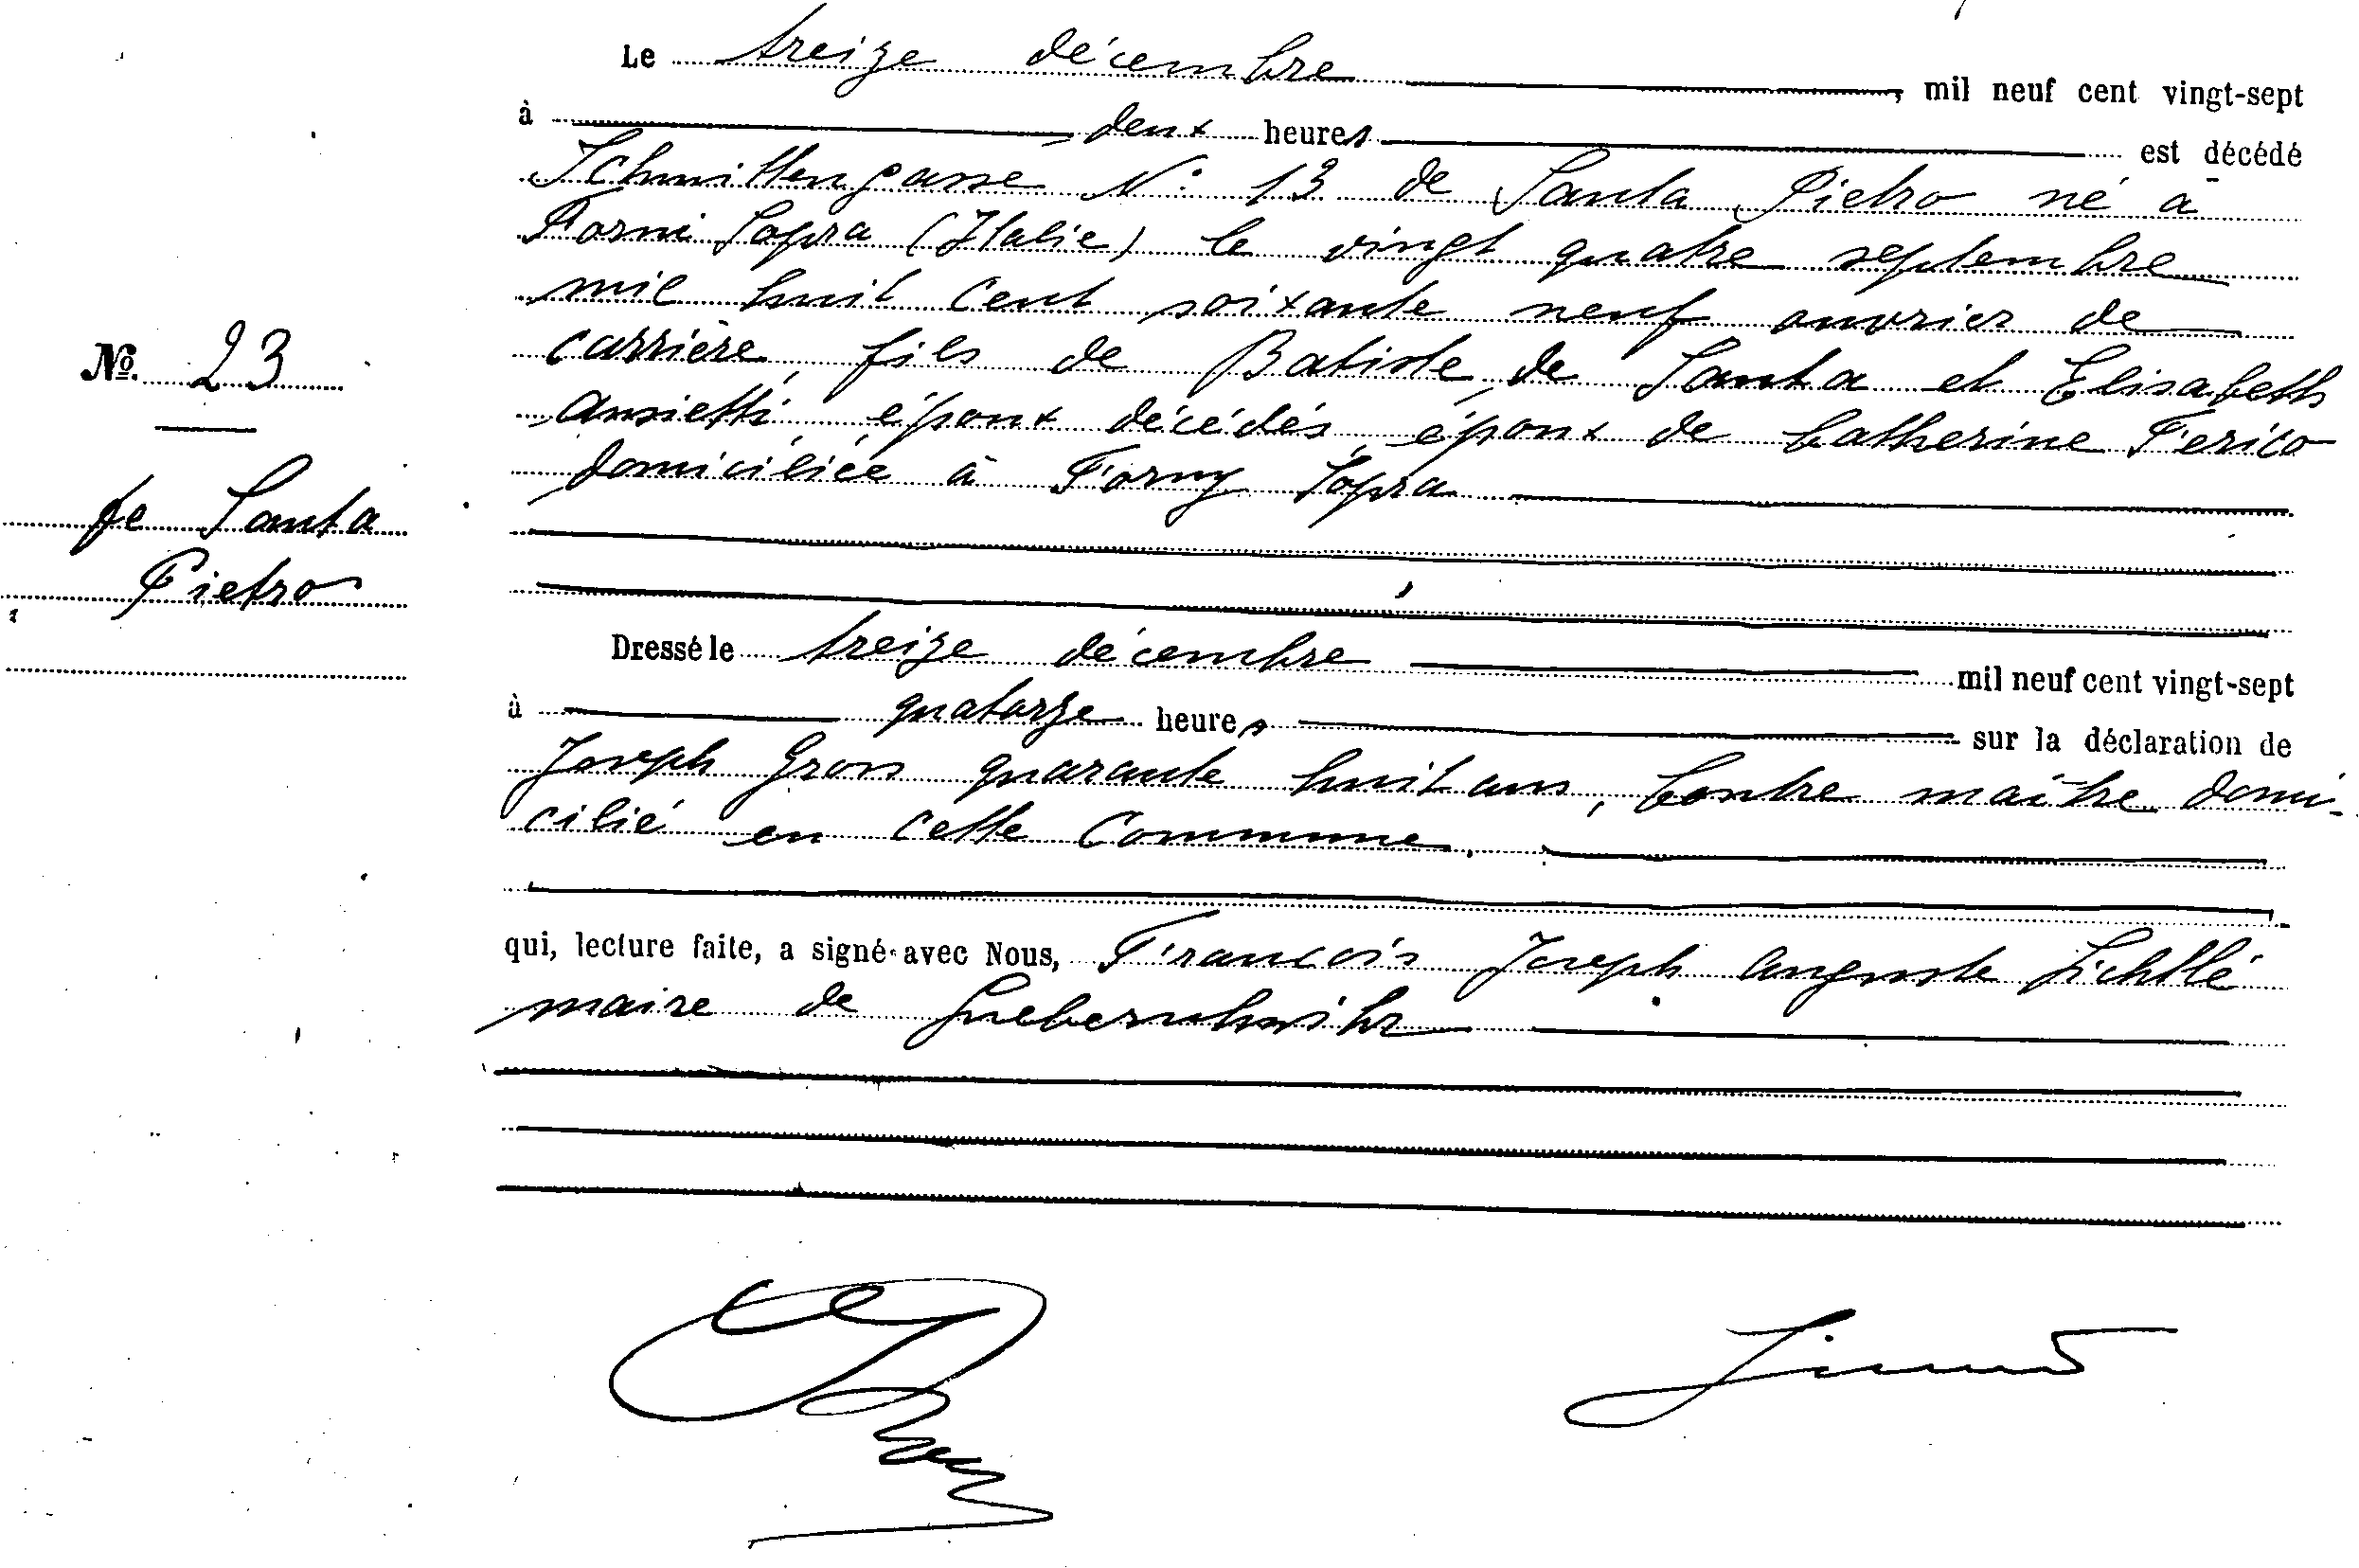 Le treize décembre, mil neuf cent vingt-sept
à deux heures est décédé
Schmittengasse N: 13 de Santa Pietro né à
Forni Sopra (Italie) le vingt quatre septembre
mil huit cent soixante neuf ouvrier de
carrière, fils de Batiste de Santa et Elisabeth
époux décédés, époux de Catherine Perico
domiciliée à Forny Sopra
No. 23
de Santa
Pietro
Dressé le treize décembre mil neuf cent vingt-sept
à quatorze heures sur la déclaration de
Joseph Gross quarante huit ans, Contre maître domi-
cilié en cette Commune.
qui, lecture faite, a signé avec Nous, François Joseph Auguste Lichtlé
maire de Gueberschwihr